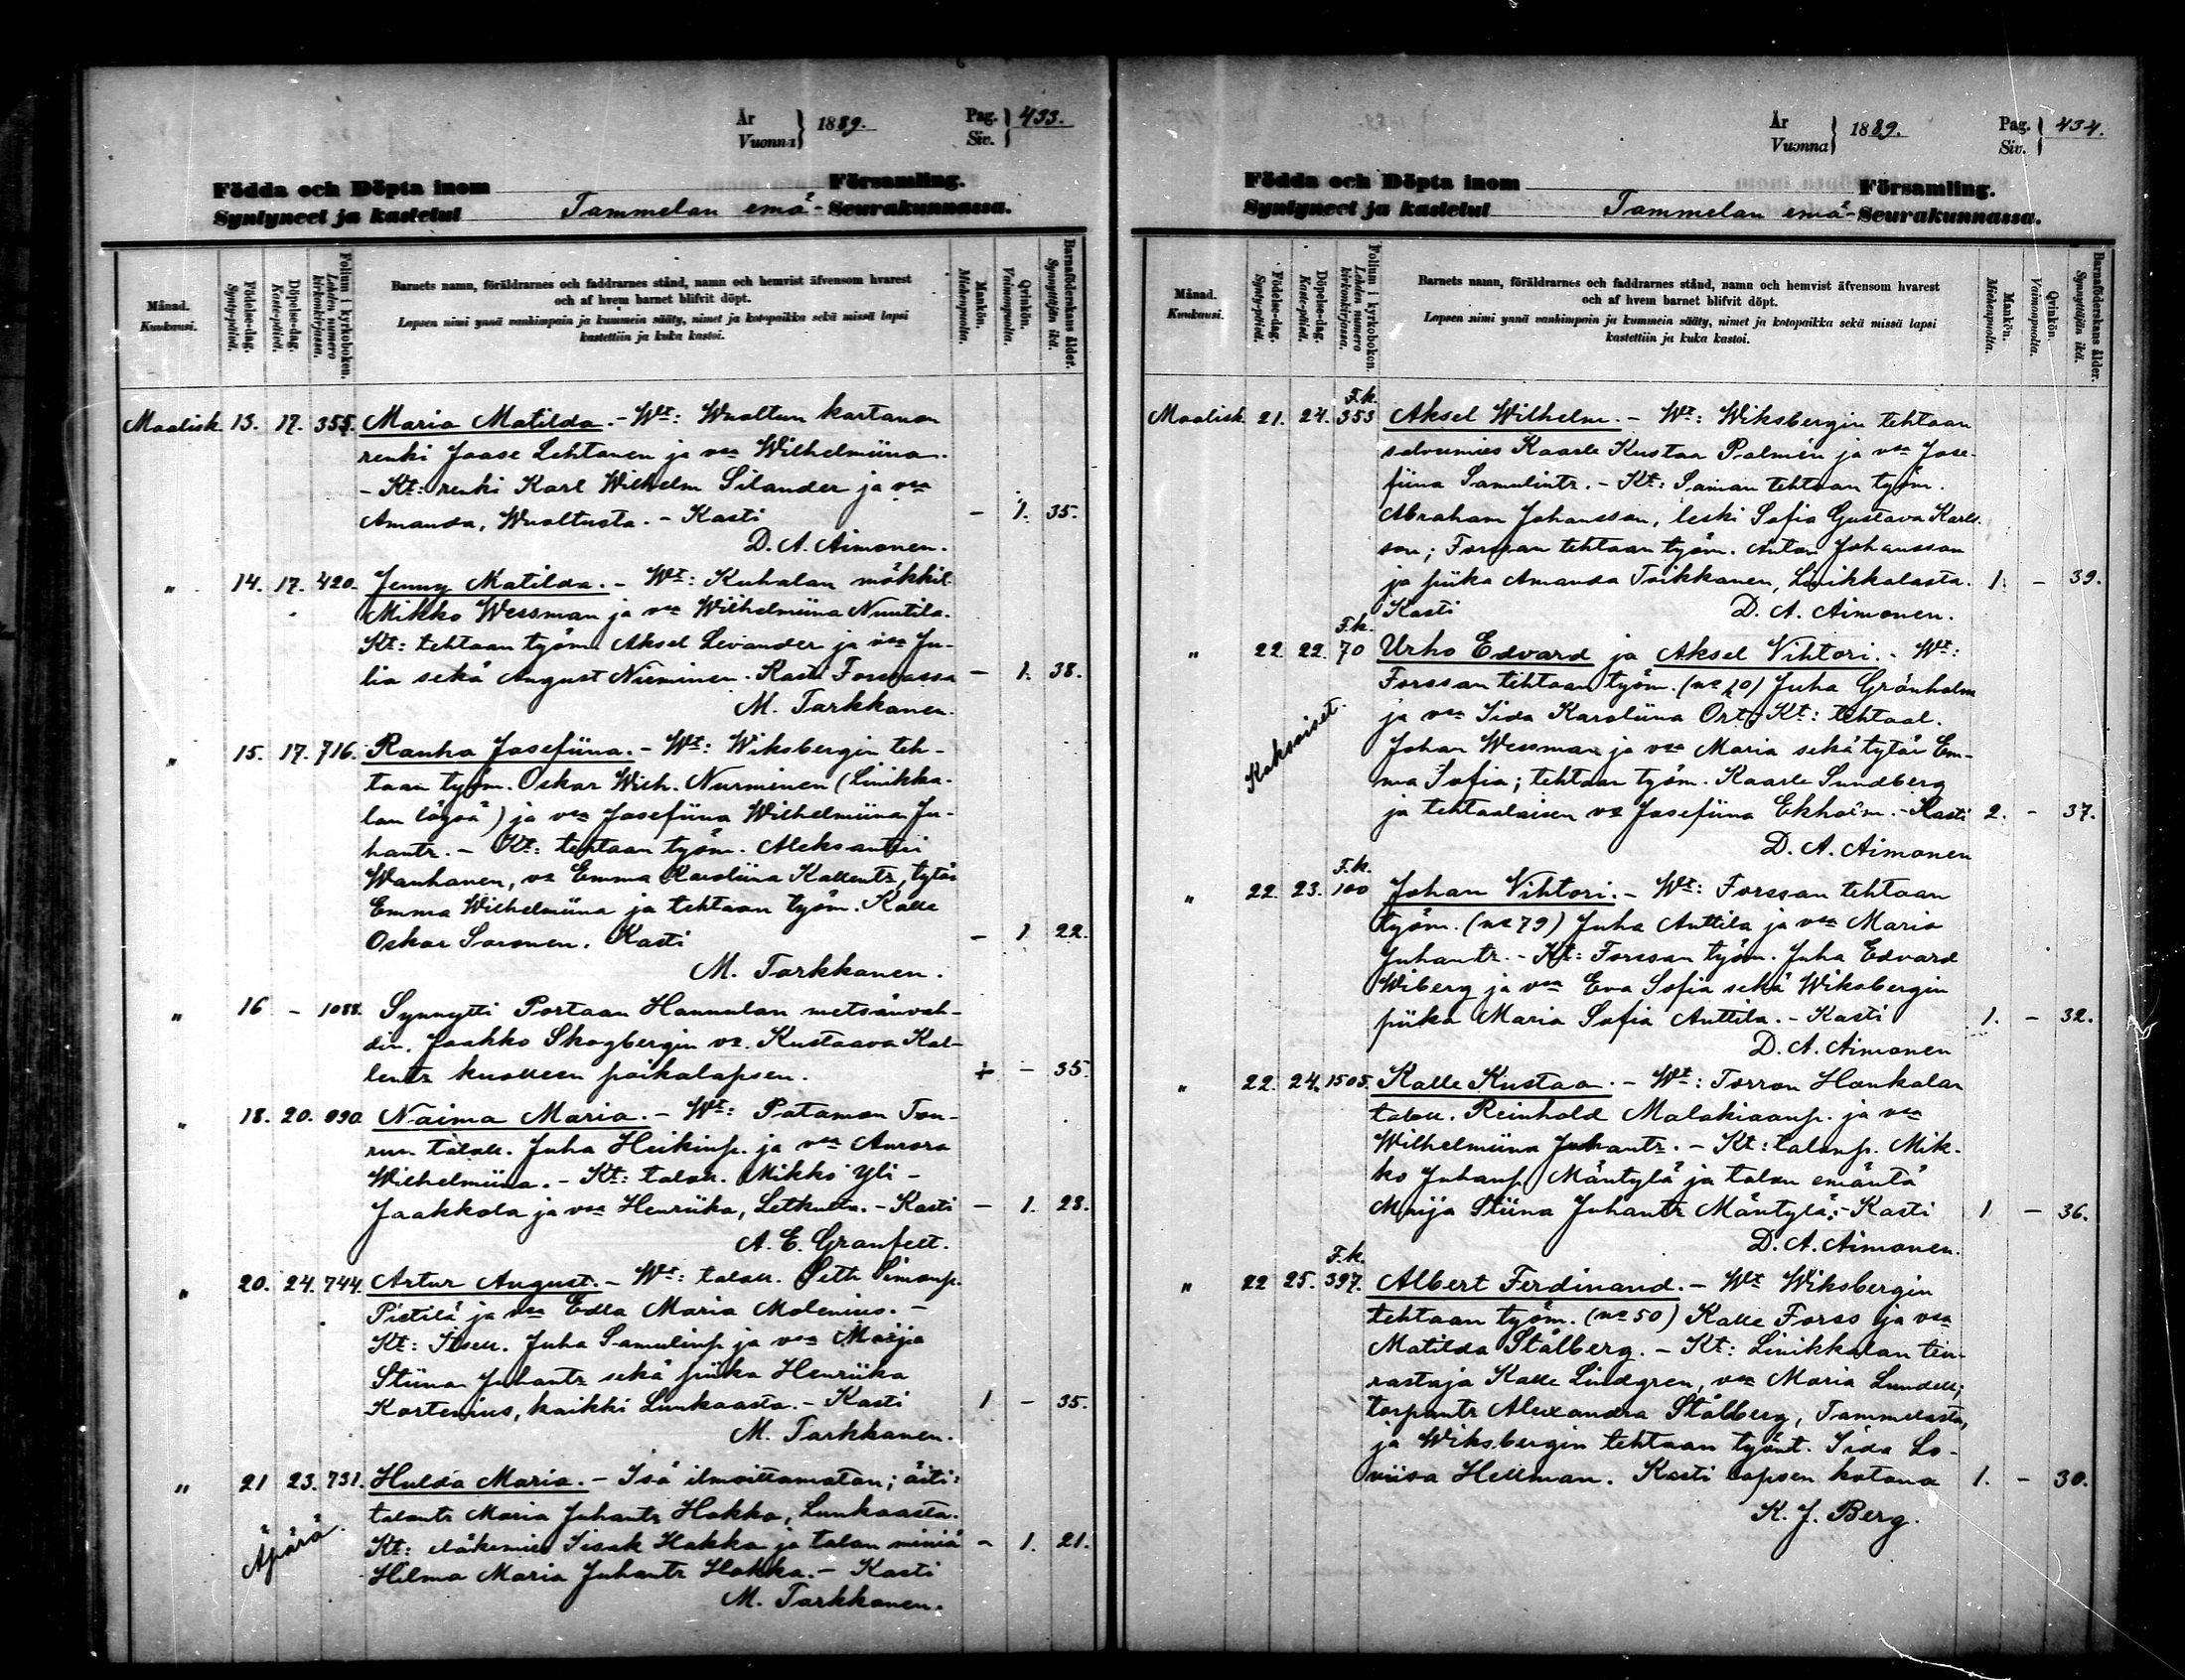 År
Vuonna
1889.
Pag.
Siv.
433.
Födda och Döpta inom Församling.
Syntyneet ja kastetut Tammelan emä-Seurakunnassa.
Månad.
Kuukausi.
Födelse-dag.
Synty-päivä.
Döpelse-dag.
Kaste-päivä.
Folium i kyrkoboken.
Lehden numero kirkonkirjassa.
Barnets namn, föräldrarnes och faddrarnes stånd, namn och hemvist äfvensom hvarest
och af hvem barnet blifvit döpt.
Lapsen nimi ynnä vanhimpain ja kummein sääty, nimet ja kotopaikka sekä missä lapsi
kastettiin ja kuka kastoi.
Mankön.
Miehenpuolia.
Qvinkön.
Vaimonpuolia.
Barnaföderskans ålder.
Synnyttäjän ikä.
Maalisk. 13. 17. 355. Maria Matilda. - Wt: Wualtun kartanon
renki Jaase Lehtonen ja vaa Wilhelmiina.
- Kt: renki Karl Wilhelm Silander ja vaa
Amanda, Wualtusta. - Kasti - 1. 35.
D. A. Aimonen.
" 14. 17. 420. Jenny Matilda. - Wt: Kuhalan mökkil.
Mikko Wessman ja vaa Wilhelmiina Nuutila.
Kt: tehtaan työm. Aksel Levander ja vaa Ju-
lia sekä August Nieminen. Kasti Forssassa - 1. 38.
M. Tarkkanen.
" 15. 17. 716. Rauha Josefiina. - Wt: Wiksbergin teh-
taan työm. Oskar Wilh. Nurminen (Linikka-
lan lägoä) ja vaa Josefiina Wilhelmiina Ju-
hantr. - Kt: tehtaan työm. Aleksanteri
Wanhanen, va Emma Karoliina Kallentr, tytär
Emma Wilhelmiina ja tehtaan työm. Kalle
Oskar Soronen. Kasti - 1 22.
M. Tarkkanen.
" 16 - 1088. Synnytti Portaan Hannulan metsänvah-
din. Jaakko Skogbergin va. Kustaava Kal-
lentr kuolleen poikalapsen. + - 35.
" 18. 20. 990. Naima Maria. - Wt: Patamon Ton-
run talall. Juha Heikinp. ja vaa Aurora
Wilhelmiina. - Kt: talon. Mikko Yli-
Jaakkola ja vaa Henriika, Letkulta. - Kasti - 1. 28.
A. E. Granfelt.
" 20. 24. 744. Artur August. - Wt: talall. Seth Simonp.
Pietilä ja vaa Edla Maria Molenius. -
Kt: Itsell. Juha Samulinp. ja vaa Maija
Stiina Juhantr sekä piika Henriika
Kortenius, kaikki Lunkaasta. - Kasti 1 - 35.
M. Tarkkanen.
" 21 23. 731. Hulda Maria. - Isä ilmoittamatan; äiti:
talontr Maria Juhantr Hakka, Lunkaasta.
Äpärä. Kt: eläkemies Iisak Hakka ja talon miniä - 1. 21.
Hilma Maria Juhantr Hakka. - Kasti
M. Tarkkanen.
År
Vuonna
1889.
Pag.
Siv.
434.
Födda och Döpta inom Församling.
Syntyneet ja kastetut Tammelan emä-Seurakunnassa.
Månad.
Kuukausi.
Födelse-dag.
Synty-päivä.
Döpelse-dag.
Kaste-päivä.
Folium i kyrkoboken.
Lehden numero kirkonkirjassa.
Barnets namn, föräldrarnes och faddrarnes stånd, namn och hemvist äfvensom hvarest
och af hvem barnet blifvit döpt.
Lapsen nimi ynnä vanhimpain ja kummein sääty, nimet ja kotopaikka sekä missä lapsi
kastettiin ja kuka kastoi.
Mankön.
Miehenpuolia.
Qvinkön.
Vaimonpuolia.
Barnaföderskans ålder.
Synnyttäjän ikä.
F.k.
Maalisk 21. 24. 353 Aksel Wilhelm. - Wt: Wiksbergin tehtaan
salvumies Kaarle Kustaa Palmén ja vaa Jose-
fiina Samulintr. - Kt: Saman tehtaan työm.
Abraham Johansson, leski Sofia Gustava Karls-
son; Forssan tehtaan työm. Anton Johansson
ja piika Amanda Toikkanen, Linikkalasta. 1. - 39.
Kasti D. A. Aimonen.
F.k.
" 22. 22. 70 Urho Edvard ja Aksel Vihtori. - Wt:
Forssan tehtaan työm. (no 20) Juha Grönholm
ja vaa Iida Karoliina Ort. Kt: tehtaal.
Kaksoiset. Johan Wessman ja vaa Maria sekä tytär Em-
ma Sofia; tehtaan työm. Kaarle Sundberg
ja tehtaalaisen va Josefiina Ekholm. - Kasti 2. - 37.
D. A. Aimonen
F.k.
" 22. 23. 100 Johan Vihtori. - Wt: Forssan tehtaan
työm. (no 79) Juha Anttila ja vaa Maria
Juhantr. - Kt: Forssan työm. Juha Edvard
Wiberg ja vaa Eva Sofia sekä Wiksbergin
piika Maria Sofia Anttila. - Kasti 1. - 32.
D. A. Aimonen
" 22. 24. 1505. Kalle Kustaa. - Wt: Torron Hankalan
talall. Reinhold Malakiaanp. ja vaa
Wilhelmiina Juhantr. - Kt: talonp. Mik-
ko Juhanp. Mäntylä ja talon emäntä
Maija Stiina Juhantr Mäntylä. - Kasti 1 - 36.
D. A. Aimonen.
F.k.
" 22 25. 397. Albert Ferdinand. - Wt Wiksbergin
tehtaan työm. (no 50) Kalle Forss ja vaa
Matilda Stålberg. - Kt: Linikkalan teu-
rastaja Kalle Lindgren, vaa Maria Lundell;
torpantr Alexandra Stålberg, Tammelasta,
ja Wiksbergin tehtaan työnt. Iida Lo-
viisa Hellman. Kasti lapsen kotona 1. - 30.
K. J. Berg.